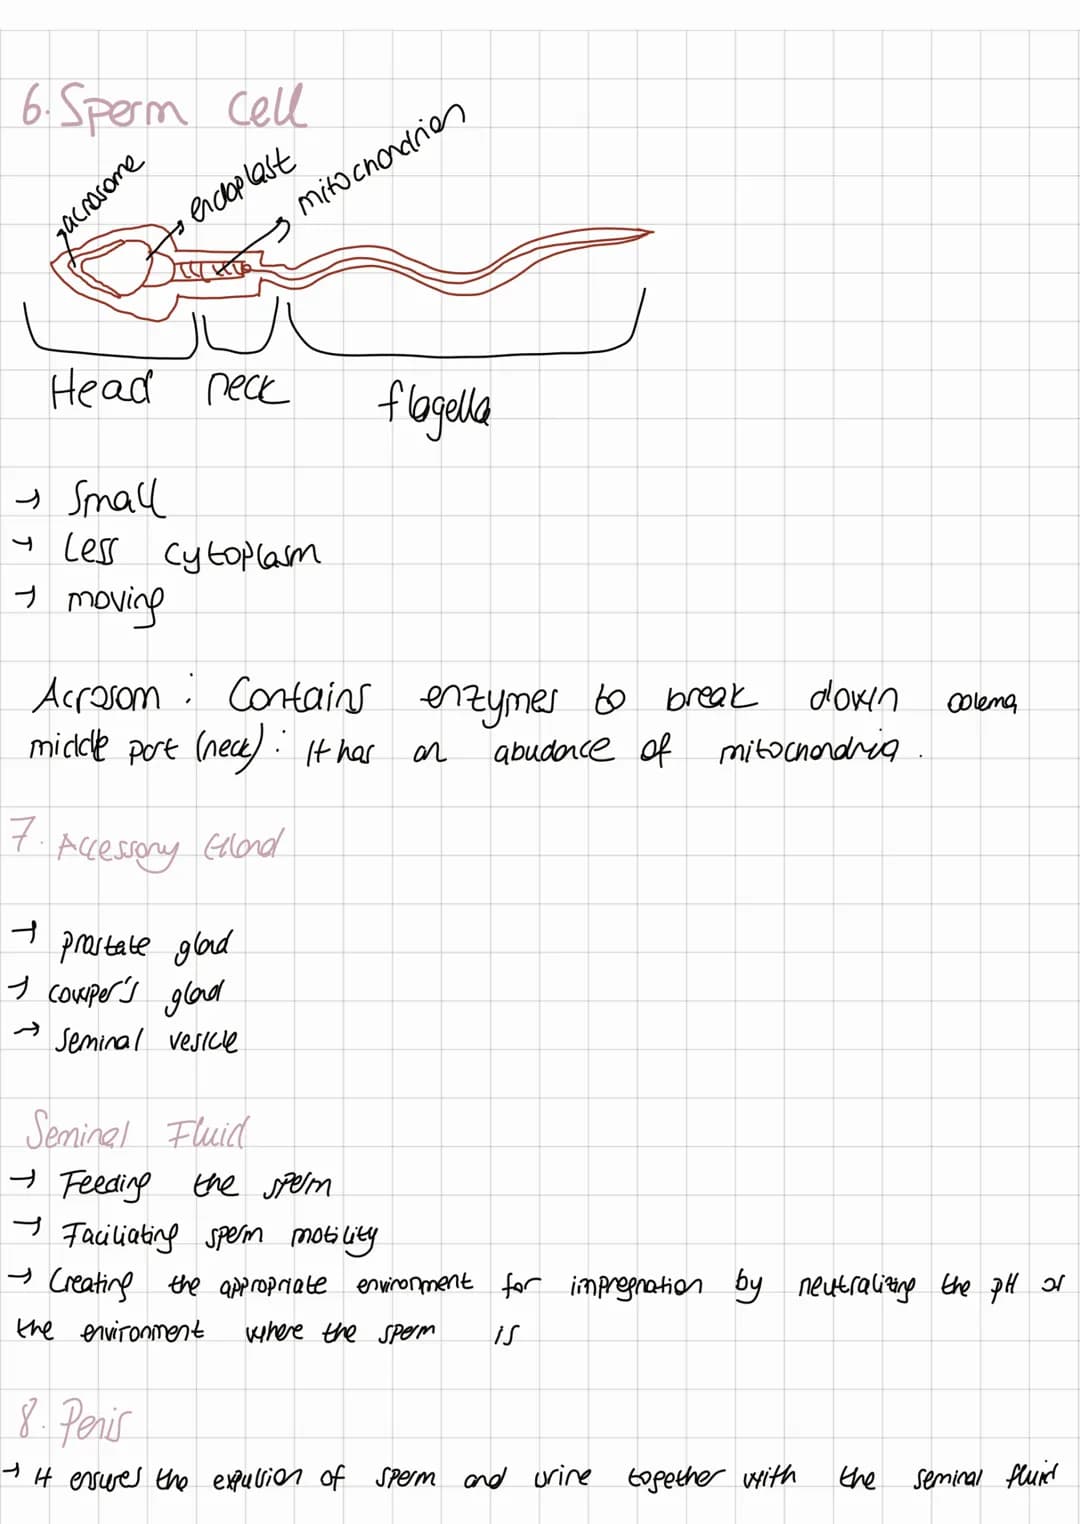 6. Sperm Cell
acrosome
endoplast
mitochondrion
Head neck flagella
→ Small
→ Less cytoplasm
→ moving
Acrosom : Contains enzymes to break down oolema
middle part (neck) : It has an abudance of mitochondria .
7. Accessory Gland
→ prostate gland
→ cowper's gland
→ Seminal vesicle
Seminal Fluid
→ Feeding the sperm
→ Faciliating sperm motility
→ Creating the appropriate environment for impregnation by neutralizing the pH or
the environment where the sperm is
8. Penis
→ It ensures the expulsion of sperm and urine together with the seminal fluid